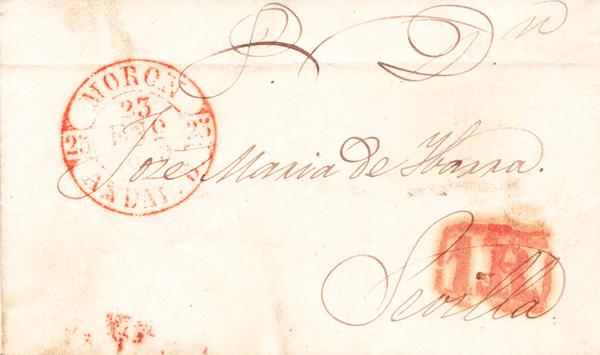 S. Dⁿ
Jose Maria de Ybarra.
Sevilla.
MORON
23
23 23
ANDAL. B.